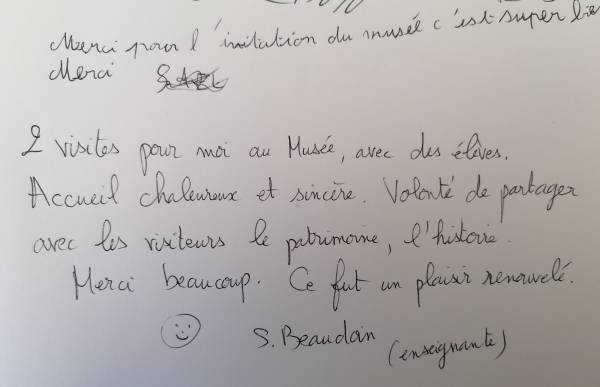 Merci pour l'invitation du musée c'est super bie
Merci
2 visites pour moi au Musée, avec des élèves.
Accueil chaleureux et sincère. Volonté de partager
avec les visiteurs le patrimoine, l'histoire.
Merci beaucoup. Ce fut un plaisir renouvelé.
S. Beaudoin (enseignante)